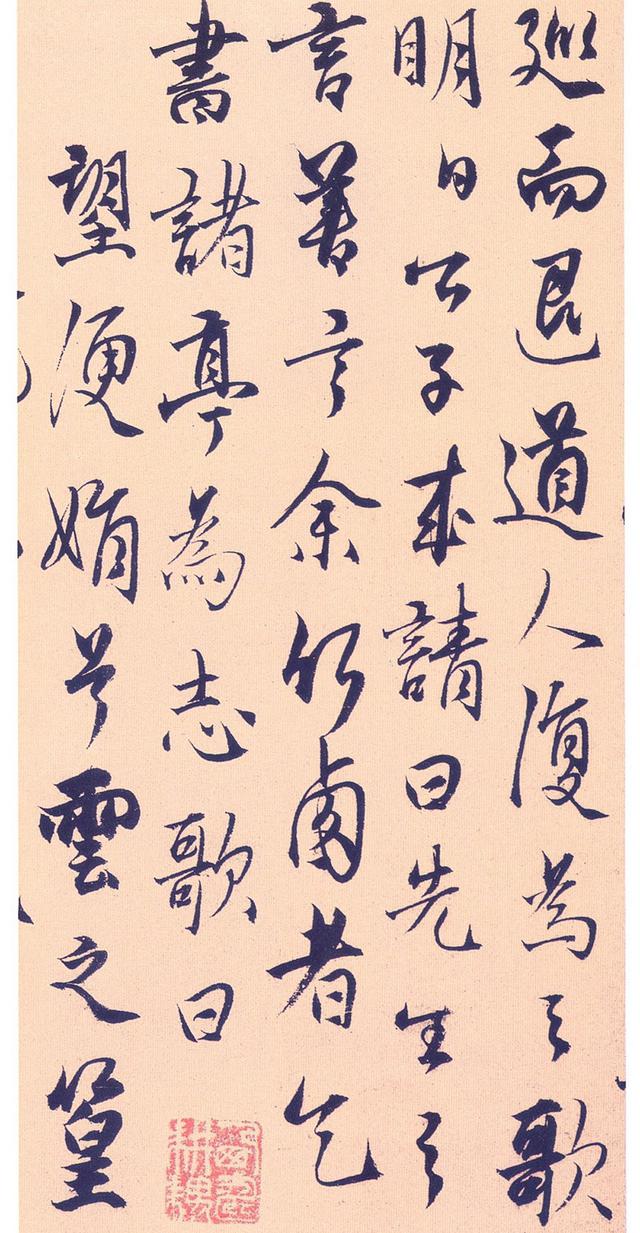 巡而退道人復為之歌
明日公子來請曰先生之
言善言余竹西者乞
書諸亭為志歌曰
望便娟兮雲之篁